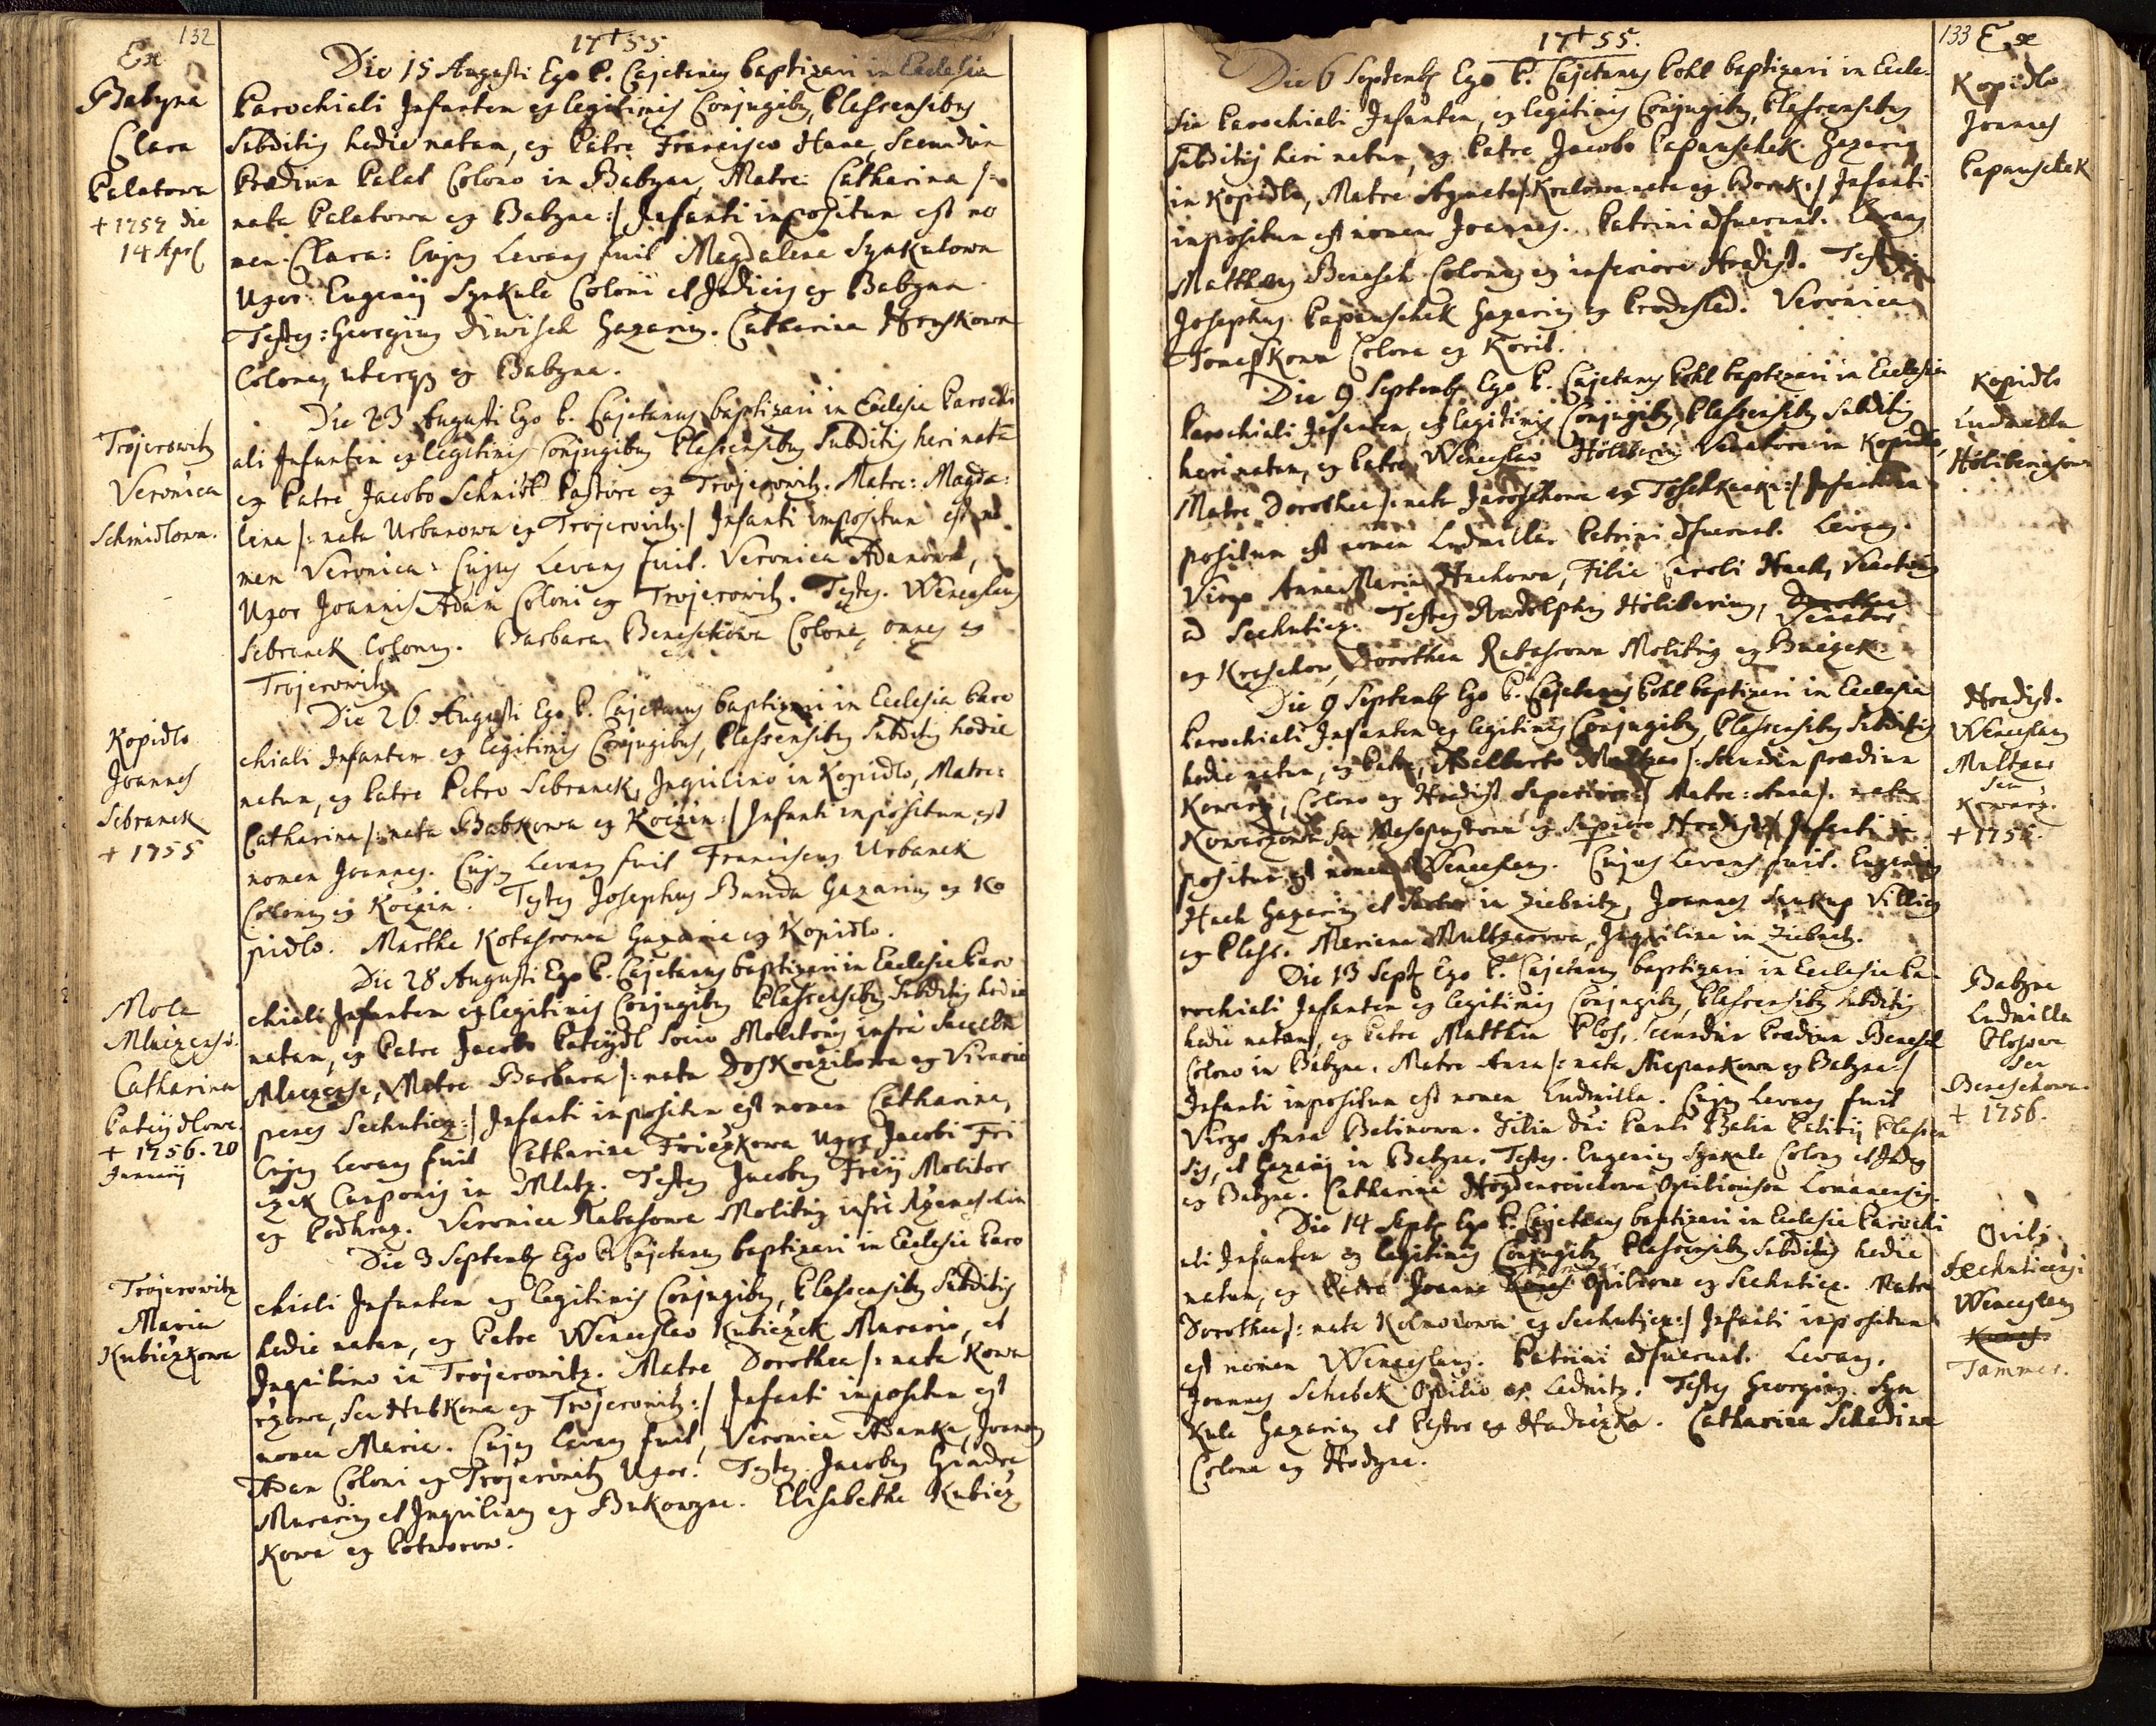 132
Ex
Babyna
Clara
Palatowa
+ 1757 die
14 Apr
17+55
Die 15 Augusti Ego P. Cajetanus baptizavi in Ecclesia
Parochiali Infantem ex legitimis Conjugibus, Plassensibus
Subditis hodie natam, ex Patre Francisco Hana, Secundum
Praedium Palat Colono in Babyna, Matre: Catharina /:
nata Palatowa ex Babyna :/ Infanti impositum est no
men Clara: Cujus Levans fuit Magdalena Synkulowa
Uxor Eugenij Synkule Coloni et Judicis ex Babyna.
Testes: Georgius Diwisch Gazarius. Catharina Hruskowa
Colona, uterque ex Babyna.
Trojerowitz
Veronica
Schmidlowa.
Die 23 Augusti Ego P. Cajetanus baptizavi in Ecclesia Parochi
ali Infantem ex legitimis Conjugibus Plassensibus Subditis heri natã
ex Patre Jacobo Schmidl Pastore ex Trojerowitz. Matre: Magda:
lena /: nata Urbanowa ex Trojerovitz :/ Infanti impositum est no
men Veronica: Cujus Levans fuit Veronica Adamowa,
Uxor Joannis Adam Coloni ex Trojerowitz. Testes. Wenceslaus
Sebranek Colonus. Barbara Beneschowa Colona, omnes ex
Trojerowitz
Kopidlo
Joannes
Sebranek
+ 1755
Die 26 Augusti Ego P. Cajetanus baptizavi in Ecclesia Paro
chiali Infantem ex legitimis Conjugibus, Plassensibus Subditis hodie
natum, ex Patre Petro Sebranek, Inquilino in Kopidlo, Matre:
Catharina /: nata Babkowa ex Koczin :/ Infanti impositum est
nomen Joannes. Cujus Levans fuit Franciscus Urbanek
Colonus ex Koczin. Testes Josephus Bunda Gazarius ex Ko
pidlo. Martha Kotassrowa Gazaria ex Kopidlo.
Mola
Mlaczensis
Catharina
Pateydlowa.
+ 1756. 20
Januarij
Die 28 Augusti Ego P. Cajetanus baptizavi in Ecclesia Paro
chiali Infantem ex legitimis Conjugibus Plassensibus Subditis hodie
natam, ex Patre Jacobo Pateydl Socio Molitoris infra
Mlaczense, Matre Barbara /: nata Doskoczilowa ex Vivario
penes Sechuticz :/ Infanti impositum est nomen Catharina,
Cujus Levans fuit Catharina Friczkowa Uxor Jacobi Fri
czek Cauponis in Mlatz. Testes Jacobus Freij Molitor
ex Podhrag. Veronica Rabasowa Molitrix infra
Trojerowitz
Maria
Kubiczkowa
Die 3 Septembr Ego P. Cajetanus baptizavi in Ecclesia Paro
chiali Infantem ex legitimis Conjugibus, Plassensibus Subditis
hodie natam, ex Patre Wenceslao Kubiczek Murario, et
Inquilino in Trojerowitz. Matre Dorothea /: nata Kowa
rzowa, seu Hubkowa ex Trojerowitz :/ Infanti impositum est
nomen Maria. Cujus Levans fuit Veronica Adamka, Joannis
Adam Coloni ex Trojerowitz Uxor. Testes. Jacobus Gindra
Murarius et Inquilinus ex Bukowyna. Elisabetha Kubicz
kowa ex Potworow.
133 Ex
Kopidlo
Joannes
Papauschek
17+55.
Die 6 Septembr Ego P. Cajetanus Pohl baptizavi in Eccle-
sia Parochiali Infantem, ex legitimis Conjugibus, Plassensibus
Subditis heri natum, ex Patre Jacobo Papauschek Gazario
in Kopidlo, Matre Agneta /: Kralowa nata ex Borek :/ Infanti
impositum est nomen Joannes. Patrini adfuerunt. Levans
Matthaeus Benesch Colonus ex inferiore Hradist. Testes
Josephus Papauschek Gazarius ex Prodeslad. Veronica
Tomesskowa Colona ex Korit.
Kopidlo
Ludmilla
Hölibernjsova
Die 9 Septembr Ego P. Cajetanus Pohl baptizavi in Ecclesia
Parochiali Infantem, ex legitimis Conjugibus, Plassensibus Subditis
heri natam, ex Patre Wenceslao Höliberin Venatore in Kopidlo,
Matre Dorothea /: nata Jaroschowa ex :/ Infanti im
positum est nomen Ludmilla. Patrini adfuerunt. Levans.
Virgo Anna Maria Hachowa, Filia Caroli Hach, Venatoris
ad Sechuticz. Testes Rudolphus Höliberius, Dorothea Venator
ex Kraschow, Dorothea Rabasrowa Molitrix ex
Hradist.
Wenceslaus
Multzer
seu
Kowarz.
+ 1756.
Die 9 Septembr Ego P. Cajetanus Pohl baptizavi in Ecclesia
Parochiali Infantem ex legitimis Conjugibus, Plassensibus Subditis
hodie natum, ex Patre, Adalberto Multzer /: secundum praedium
Kowarz, Colono ex Hradist Superiore :/ Matre: Anna /: nata
Kowarzowa seu Masopustowa ex Superiore Hradist :/ Infanti im
positum est nomen Wenceslaus. Cujus Levans fuit. Eugenius
Hach Gazarius et in Ziebnitz, Joannes Saukup Villicus
ex Plass. Mariana Multzerowa, Inquilina in Ziebnitz.
Babyna
Ludmilla
Plosowa
seu
Beneschowa.
+ 1756.
Die 13 Sept Ego P. Cajetanus baptizavi in Ecclesia Pa-
rochiali Infantem ex legitimis Conjugibus, Plassensibus Subditis
hodie natam, ex Patre Matthia Plos, secundum Praedium Benesch
Colono in Babyna. Matre Anna /: nata Stiepankowa ex Babyna :/
Infanti impositum est nomen Ludmilla. Cujus Levans fuit
Virgo Anna Belinowa. Filia Dñi Pauli Belin Plassen
sis, et Gazarij in Babyna. Testes. Eugenius Synkule Colonus et Judex
ex Babyna. Catharina Opilionissa Lomanensis.
Ovilj.
Sechuticensi
Wenceslaus
Kunes.
Tammer.
Die 14 Septr Ego P. Cajetanus baptizavi in Ecclesia Parochi
ali Infantem ex legitimis Conjugibus Plassensibus Subditis hodie
natum, ex Patre Joanne Kunes Opilione ex Sechuticz. Matre
Dorothea /: nata Kolmowowa ex Sechuticz :/ Infanti impositum
est nomen Wenceslaus. Patrini adfuerunt. Levans.
Joannes Schebek Opilio ex Lednitz. Testes Georgius Syn
kule Gazarius et Pastor ex Hadaczka. Catharina Schedina
Colona ex Hodyna.